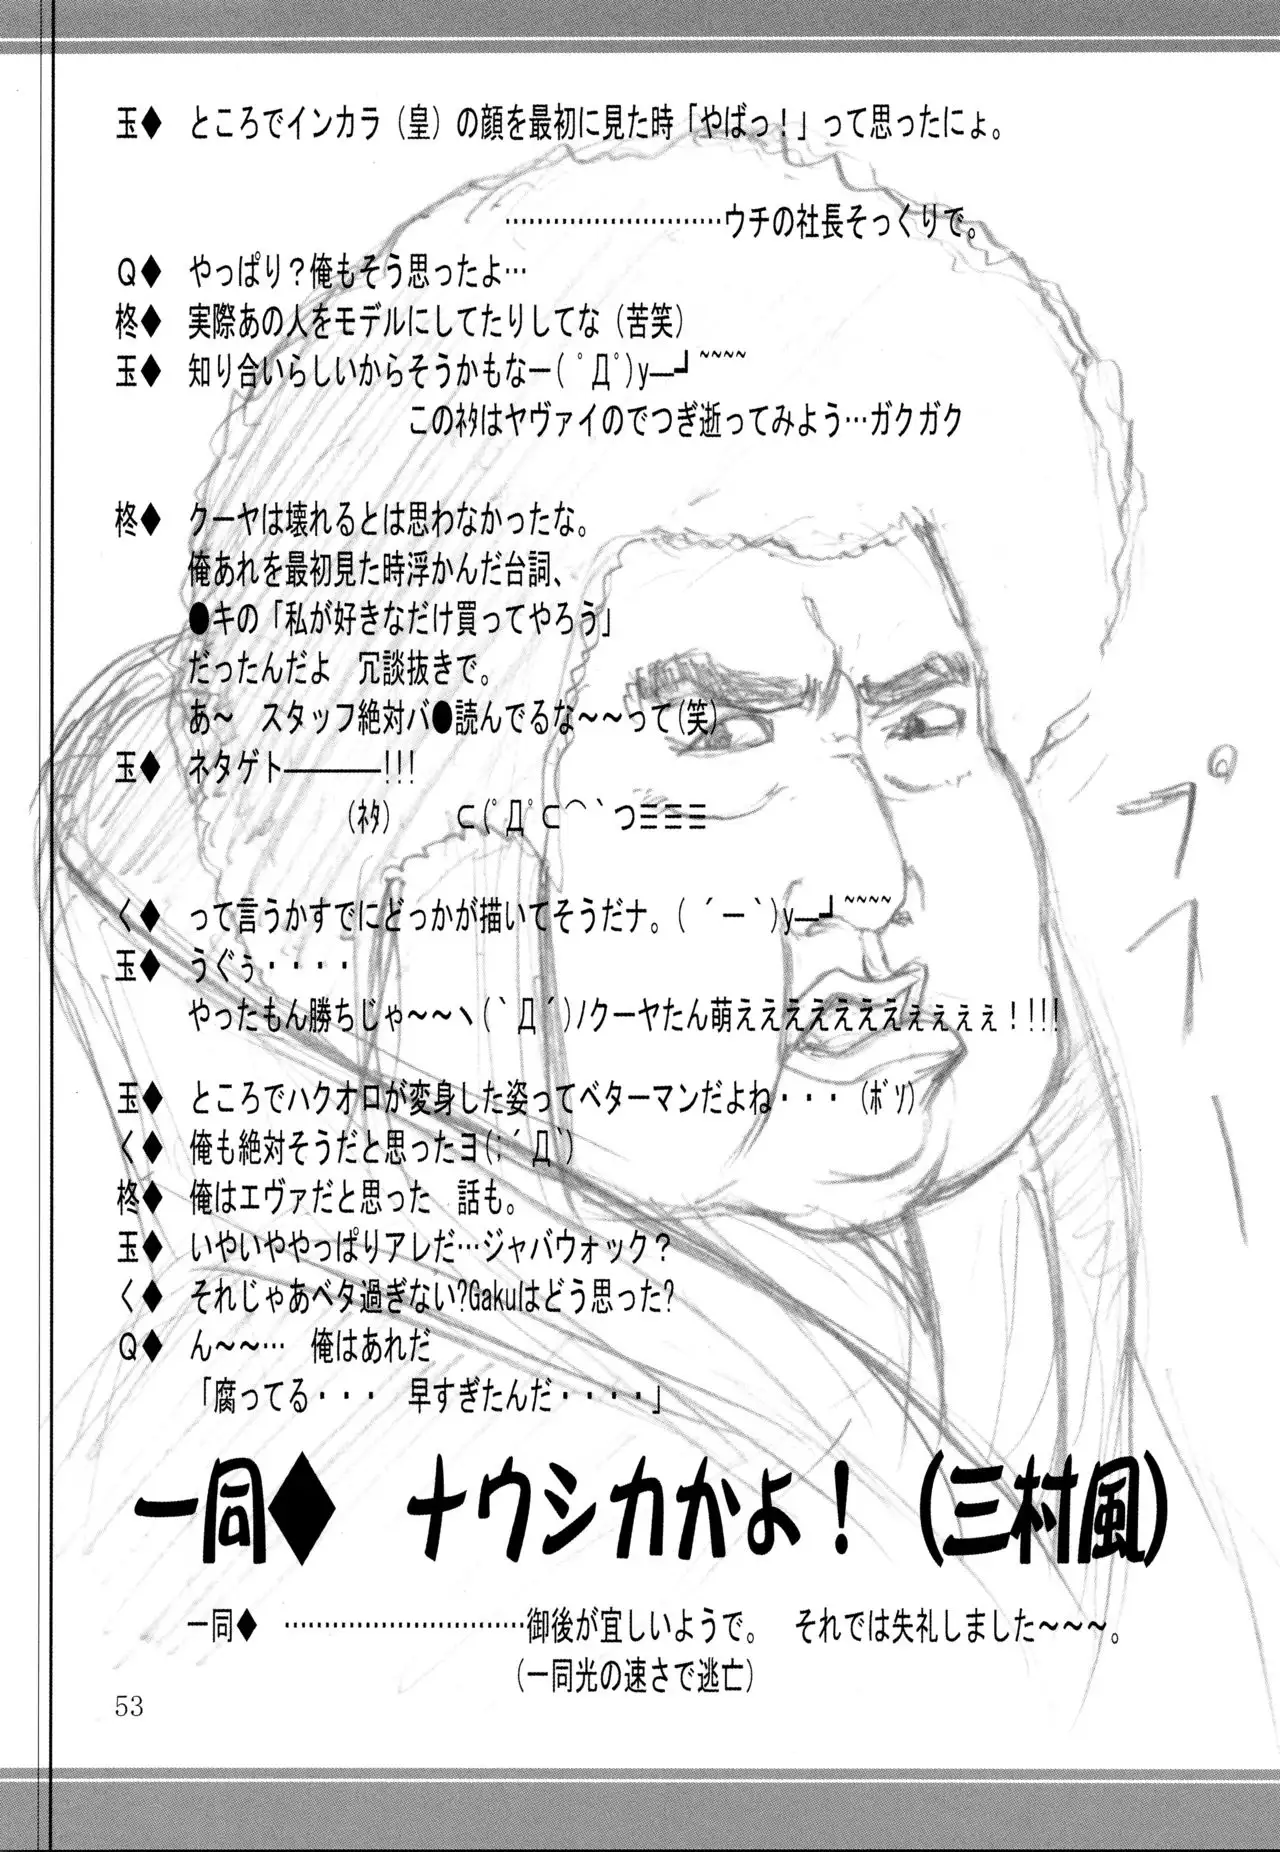 玉◆ ところでインカラ（皇）の顔を最初に見た時「やばっ！」って思ったにょ。
…………………………ウチの社長そっくりで。
Ｑ◆ やっぱり？俺もそう思ったよ…
柊◆ 実際あの人をモデルにしてたりしてな（苦笑）
玉◆ 知り合いらしいからそうかもなー( ﾟДﾟ)y─┛~~~~
このﾈﾀはヤヴァイのでつぎ逝ってみよう…ガクガク
柊◆ クーヤは壊れるとは思わなかったな。
俺あれを最初見た時浮かんだ台詞、
●キの「私が好きなだけ買ってやろう」
だったんだよ　冗談抜きで。
あ～　スタッフ絶対バ●読んでるな～～って(笑)
玉◆ ネタゲト――――!!!
（ﾈﾀ）　⊂(ﾟДﾟ⊂⌒｀つ≡≡≡
く◆ って言うかすでにどっかが描いてそうだナ。( ´ー｀)y─┛~~~~
玉◆ うぐぅ・・・・
やったもん勝ちじゃ～～ヽ(｀Д´)ﾉクーヤたん萌えええええええぇぇぇぇ！!!!
玉◆ ところでハクオロが変身した姿ってベターマンだよね・・・（ﾎﾞｿ）
く◆ 俺も絶対そうだと思ったヨ(;´Д｀)
柊◆ 俺はエヴァだと思った　話も。
玉◆ いやいややっぱりアレだ…ジャバウォック？
く◆ それじゃあベタ過ぎない?Gakuはどう思った?
Ｑ◆ ん～～…　俺はあれだ
「腐ってる・・・　早すぎたんだ・・・・」
一同◆　ナウシカかよ！（三村風）
一同◆ …………………………御後が宜しいようで。　それでは失礼しました～～～。
（一同光の速さで逃亡）
53
プイーッ